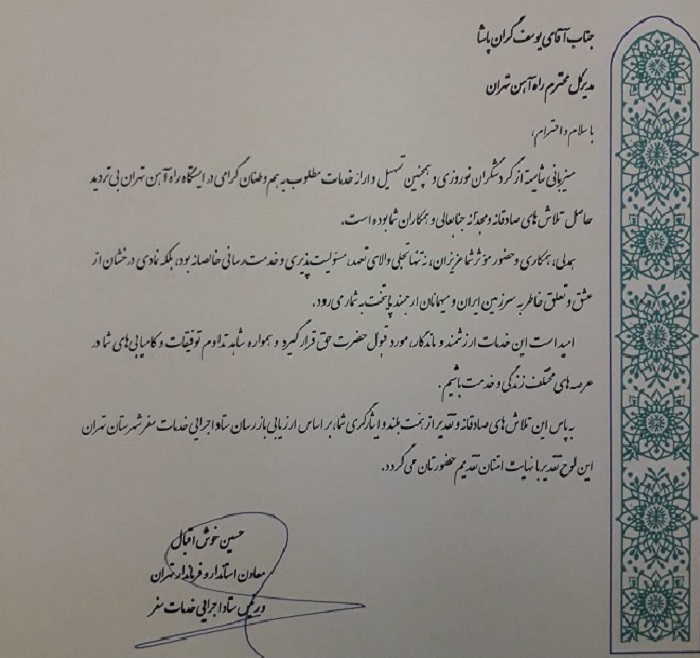 جناب آقای یوسف گران پاشا
مدیرکل محترم راه آهن تهران
با سلام و احترام،
میزبانی شایسته از گردشگران نوروزی و همچنین تسهیل و ارائه خدمات مطلوب به هم وطنان گرامی در ایستگاه راه آهن تهران بی تردید
حاصل تلاش های صادقانه و مجدانه جنابعالی و همکاران شما بوده است.
همدلی، همکاری و حضور مؤثر شما عزیزان، نه تنها تجلی والای تعهد، مسئولیت پذیری و خدمت رسانی خالصانه بود، بلکه نمادی درخشان از
عشق و تعلق خاطر به سرزمین ایران و میهمانان ارجمند پایتخت به شمار می رود.
امید است این خدمات ارزشمند و ماندگار، مورد قبول حضرت حق قرار گیرد و همواره شاهد تداوم توفیقات و کامیابی های شما در
عرصه های مختلف زندگی و خدمت باشیم.
به پاس این تلاش های صادقانه و تقدیر از همت بلند و ایثارگری شما، بر اساس ارزیابی بازرسان ستاد اجرایی خدمات سفر شهرستان تهران
این لوح تقدیر با نهایت امتنان تقدیم حضورتان می گردد.
حسین خوش اقبال
معاون استاندار و فرماندار تهران
و رئیس ستاد اجرایی خدمات سفر